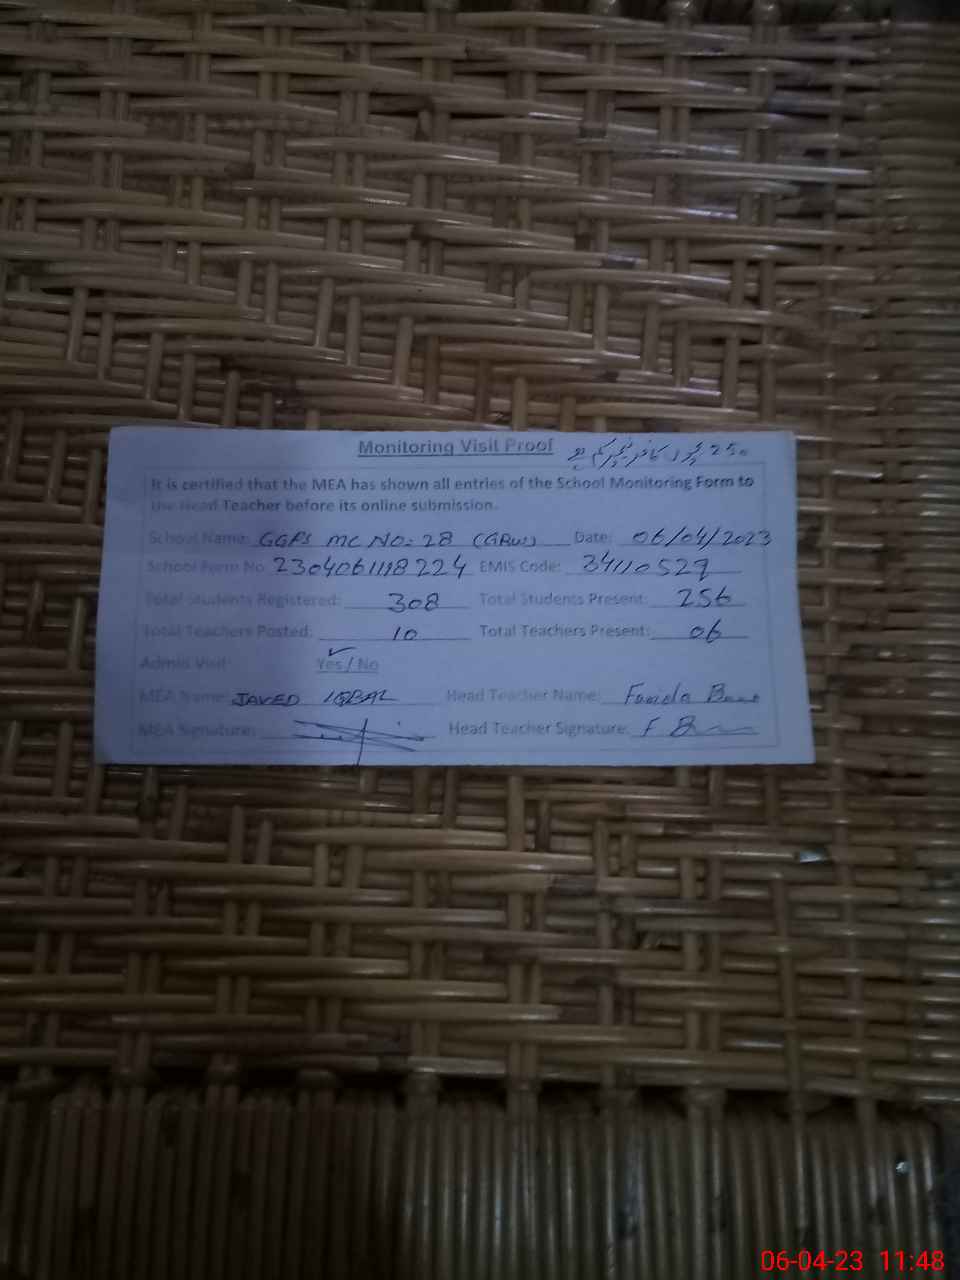 Monitoring Visit Proof
250
It is certified that the MEA has shown all entries of the School Monitoring Form to
the Head Teacher before its online submission.
School Name: GGPS MC NO: 28 (GRW) Date: 06/04/2023
School Form No. 2304061118224 EMIS Code: 34110527
Total Students Registered: 308 Total Students Present: 256
Total Teachers Posted: 10 Total Teachers Present: 06
Admin Visit: Yes / No
MEA Name: JAVED IQBAL Head Teacher Name: Farida
MEA Signature: Head Teacher Signature: F
06-04-23 11:48